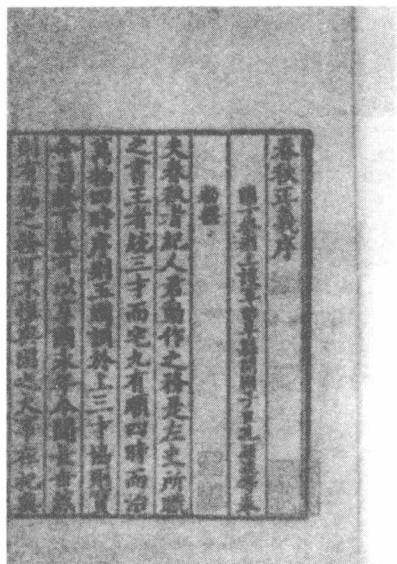 春秋正義序
國子祭酒上護軍曲阜縣開國子臣孔穎達等奉
勑撰
夫春秋者紀人君動作之務是左史所職
之書王者統三才而宅九有順四時而治
萬物四時序則玉燭調於上三才協則寶
命昌於下故可以享國永年令聞長世然
則有為之務可不慎與國之大事在祀與